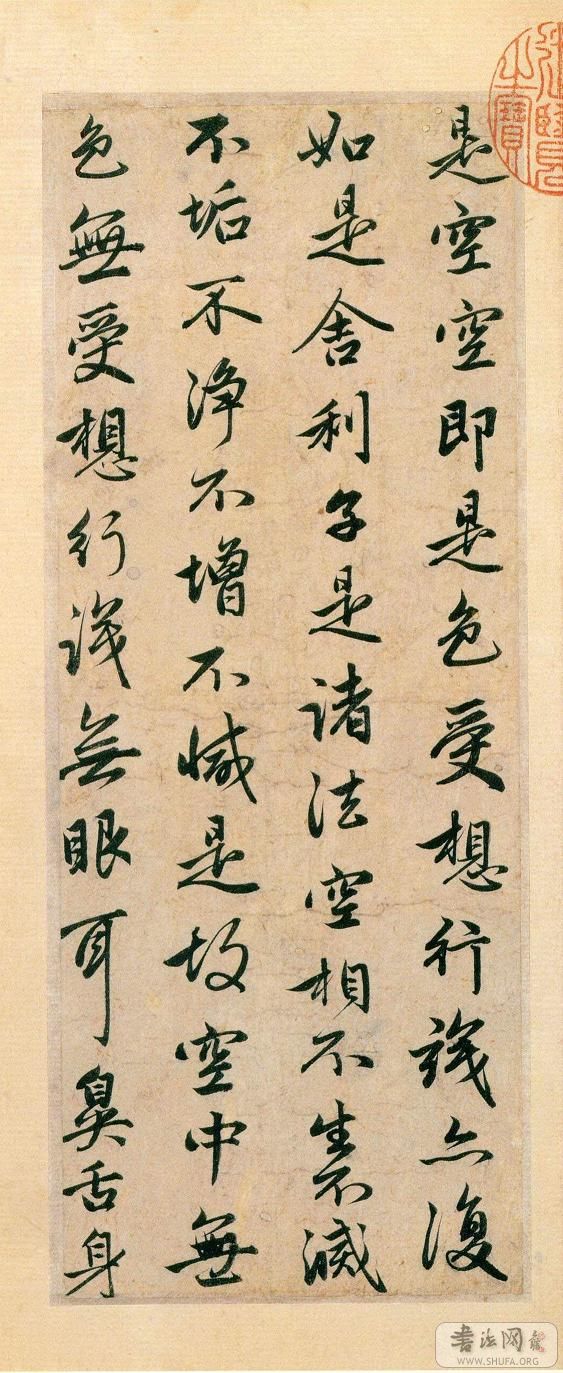 是空空即是色受想行識亦復
如是舍利子是諸法空相不生不滅
不垢不淨不增不減是故空中無
色無受想行識無眼耳鼻舌身
書法网
WWW.SHUFA.ORG